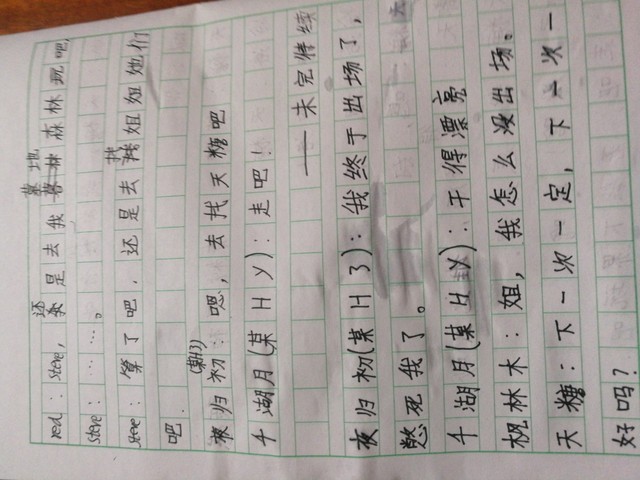 red：steve，还是去我墓地森林玩吧，
steve：……。
steve：算了吧，还是去找姐姐她们
吧.
夜归粉(某H3)：嗯，去找天糖吧
千湖月(某HY)：走吧！
——未完待续
夜归粉(某H3)：我终于出场了，
憋死我了。
千湖月(某HY)：干得漂亮
枫林木：姐，我怎么没出场。
天糖：下一次一定，下一次一
好吗？